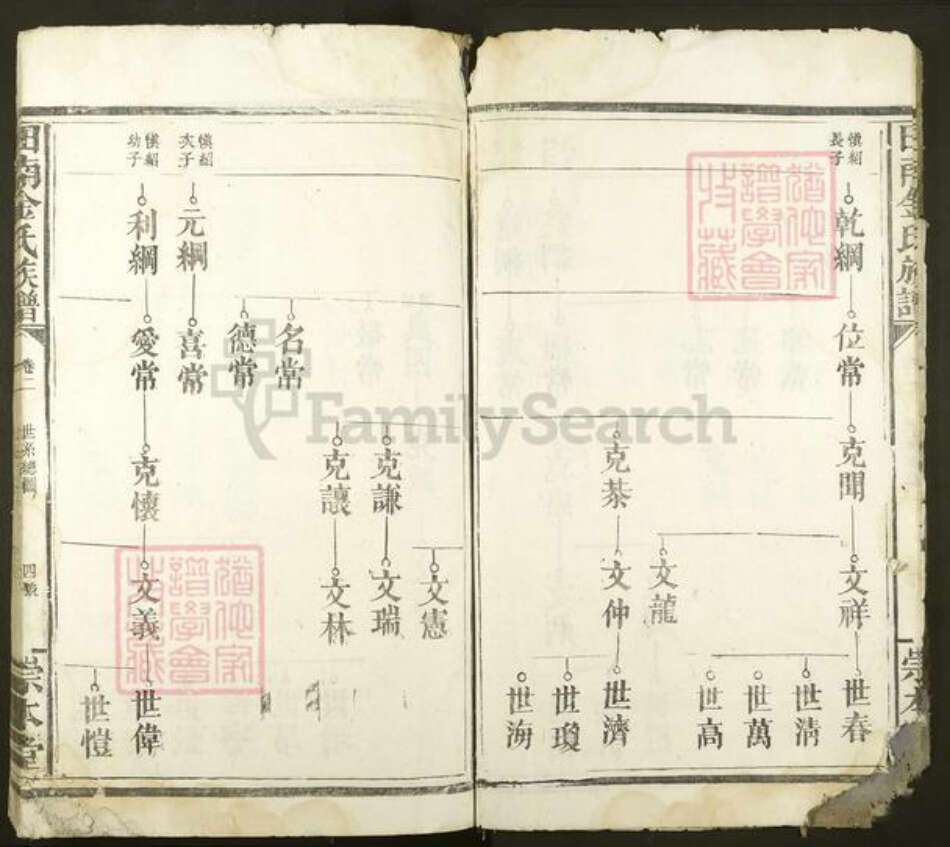 田南金氏族譜
慎紹長子
乾綱
位常
克閗
文祥
世春
世淸
世萬
世高
文龍
克恭
文仲
世濟
世瓊
世海
文憲
克謙
文瑞
克讓
文林
名常
德常
慎紹次子
元綱
喜常
慎紹幼子
利綱
愛常
克懷
文義
世偉
世愷
田南金氏族譜
卷二
世系總圖
四號
崇本堂
猶他家譜學會收藏
猶他家譜學會收藏
FamilySearch